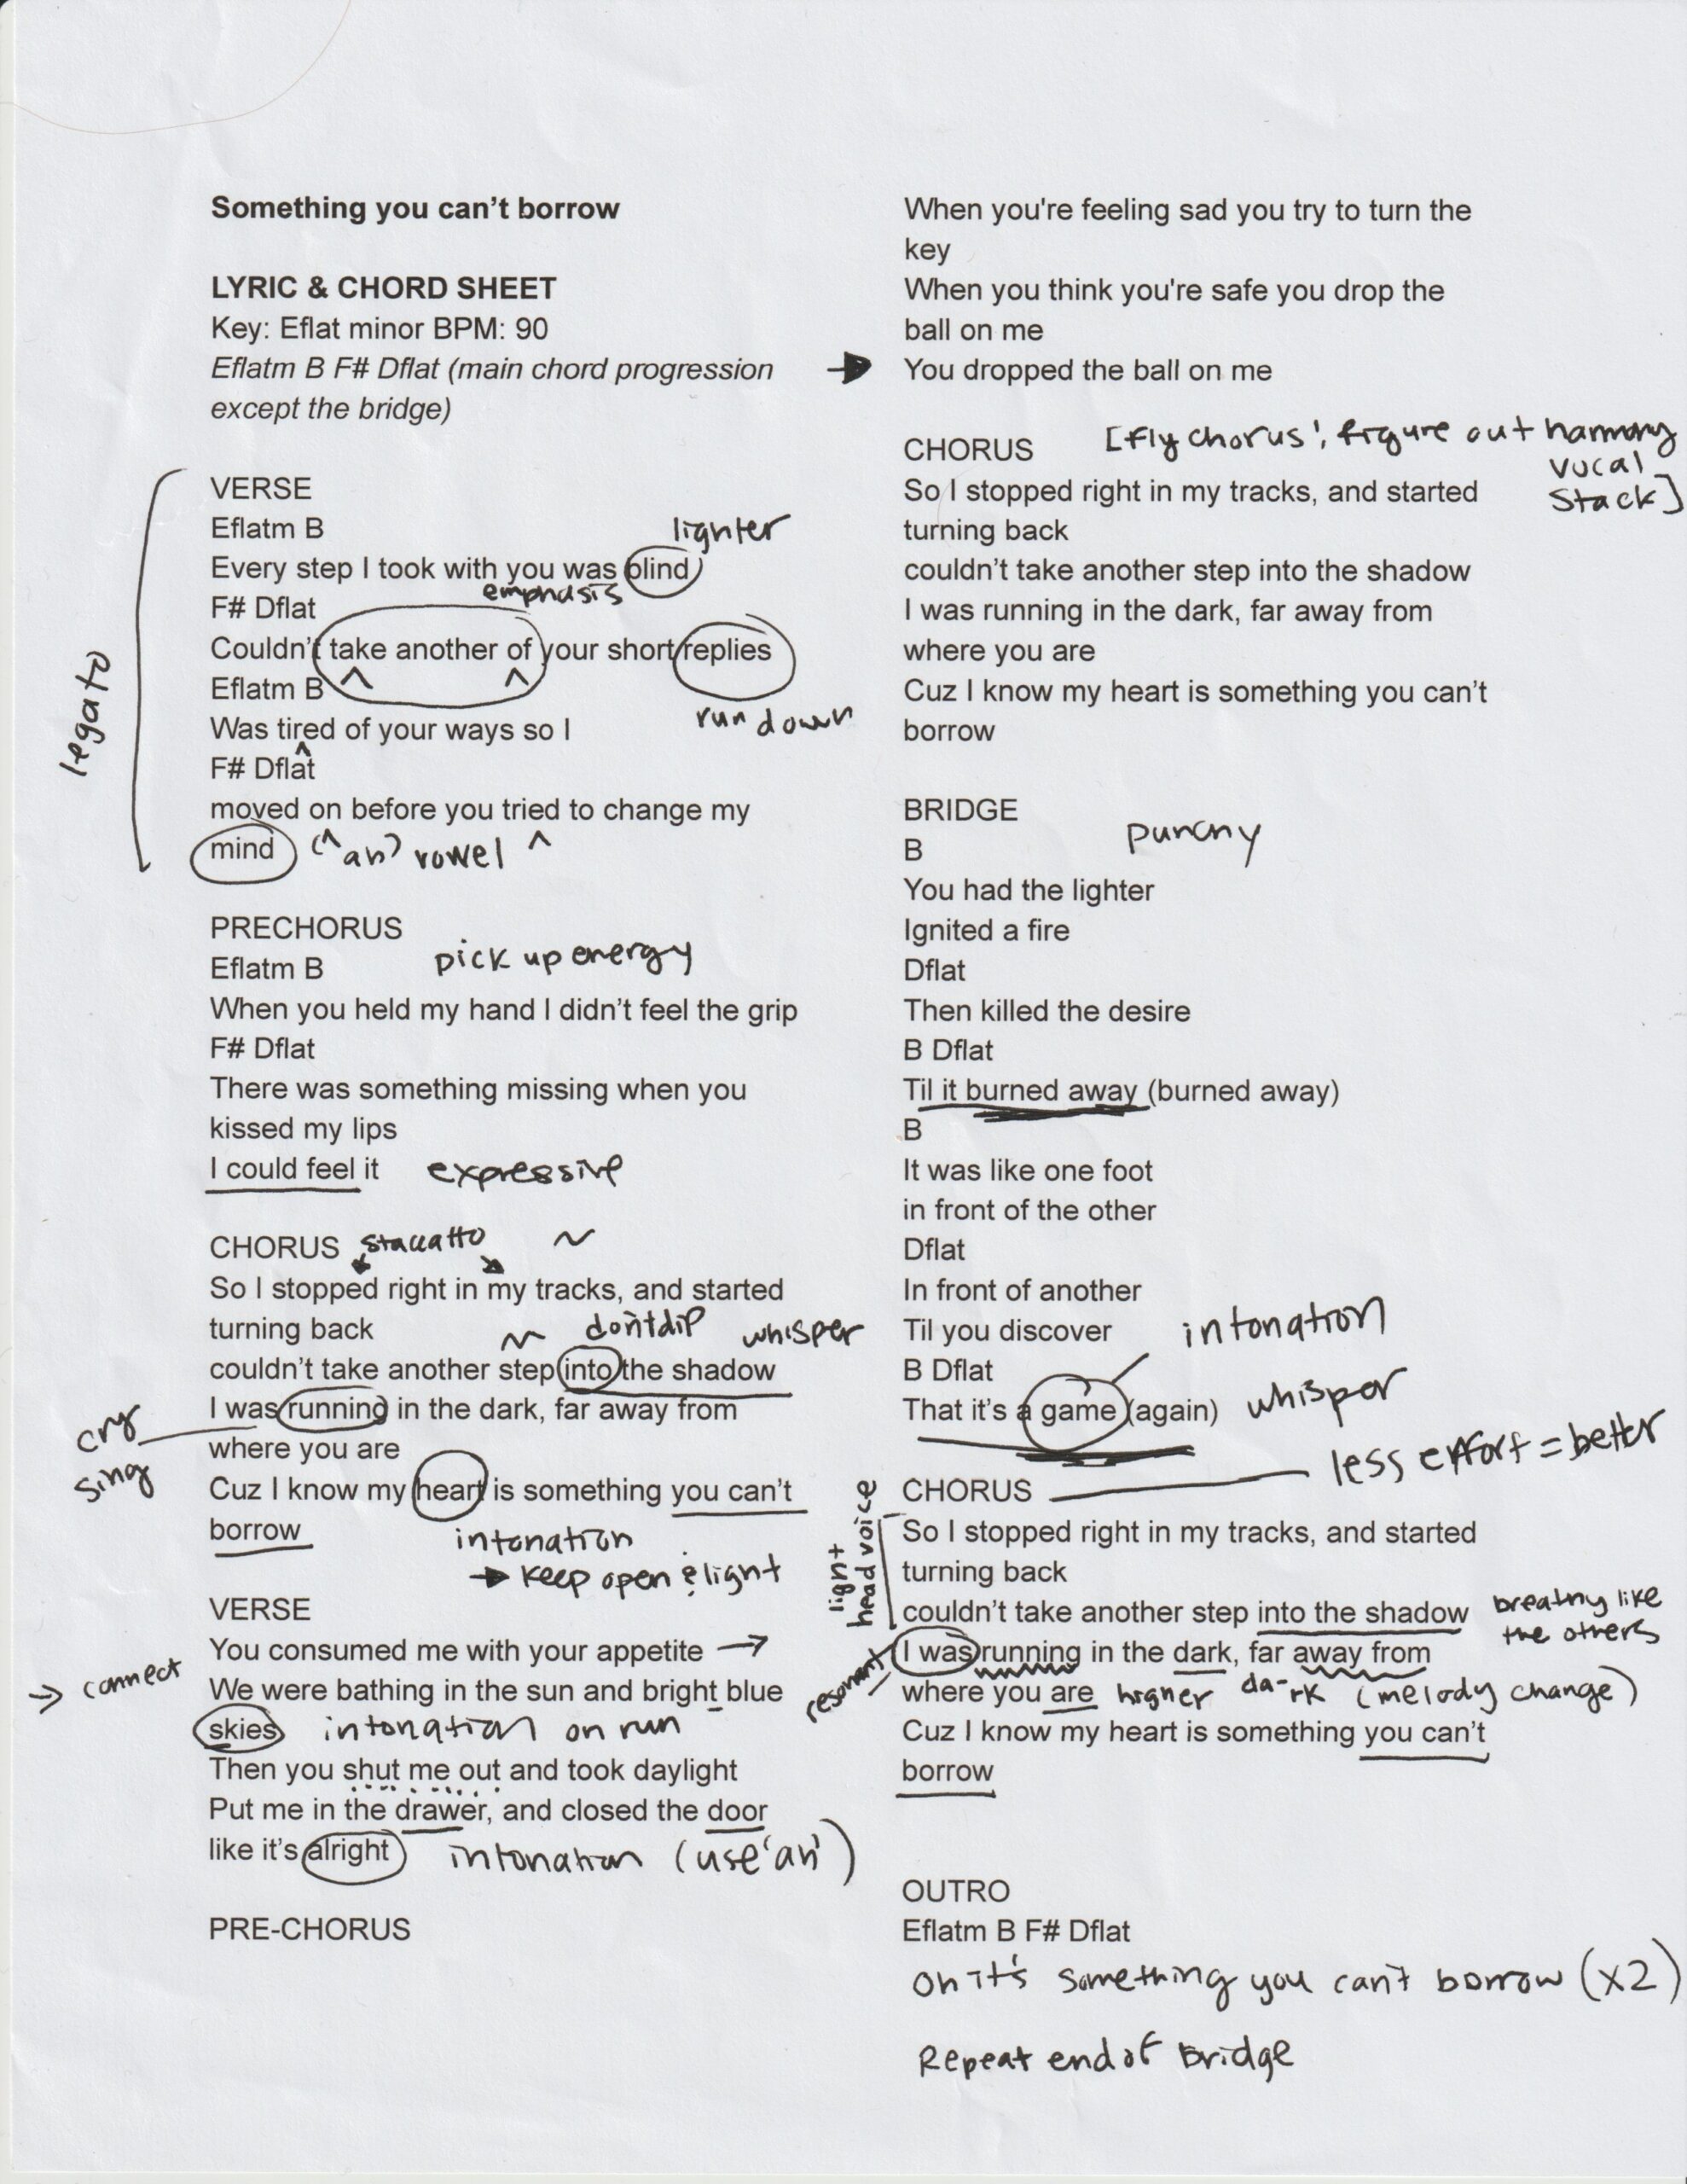 Something you can't borrow
LYRIC & CHORD SHEET
Key: Eflat minor BPM: 90
Eflatm B F# Dflat (main chord progression
except the bridge)
legato
VERSE
Eflatm B
lighter
Every step I took with you was blind
emphasis
F# Dflat
Couldn't take another of your short replies
^ ^
Eflatm B
run down
Was tired of your ways so I
^
F# Dflat
moved on before you tried to change my
mind (^ah) vowel ^
PRECHORUS
pick up energy
Eflatm B
When you held my hand I didn't feel the grip
F# Dflat
There was something missing when you
kissed my lips
I could feel it expressive
CHORUS staccatto ~
So I stopped right in my tracks, and started
turning back
~ don't dip whisper
couldn't take another step into the shadow
I was running in the dark, far away from
cry
sing
where you are
Cuz I know my heart is something you can't
borrow
intonation
→ keep open & light
VERSE
You consumed me with your appetite →
→ connect
We were bathing in the sun and bright blue
skies intonation on run
Then you shut me out and took daylight
Put me in the drawer, and closed the door
like it's alright intonation (use 'ah')
PRE-CHORUS
When you're feeling sad you try to turn the
key
When you think you're safe you drop the
ball on me
→ You dropped the ball on me
CHORUS [Fly chorus', figure out harmony
vocal
stack]
So I stopped right in my tracks, and started
turning back
couldn't take another step into the shadow
I was running in the dark, far away from
where you are
Cuz I know my heart is something you can't
borrow
BRIDGE
punchy
B
You had the lighter
Ignited a fire
Dflat
Then killed the desire
B Dflat
Til it burned away (burned away)
B
It was like one foot
in front of the other
Dflat
In front of another
Til you discover intonation
B Dflat
That it's a game (again) whisper
CHORUS less effort = better
light
head voice
So I stopped right in my tracks, and started
turning back
couldn't take another step into the shadow breathy like
the others
resonant
I was running in the dark, far away from
where you are higher da-rk (melody change)
Cuz I know my heart is something you can't
borrow
OUTRO
Eflatm B F# Dflat
Oh it's something you can't borrow (x2)
Repeat end of Bridge